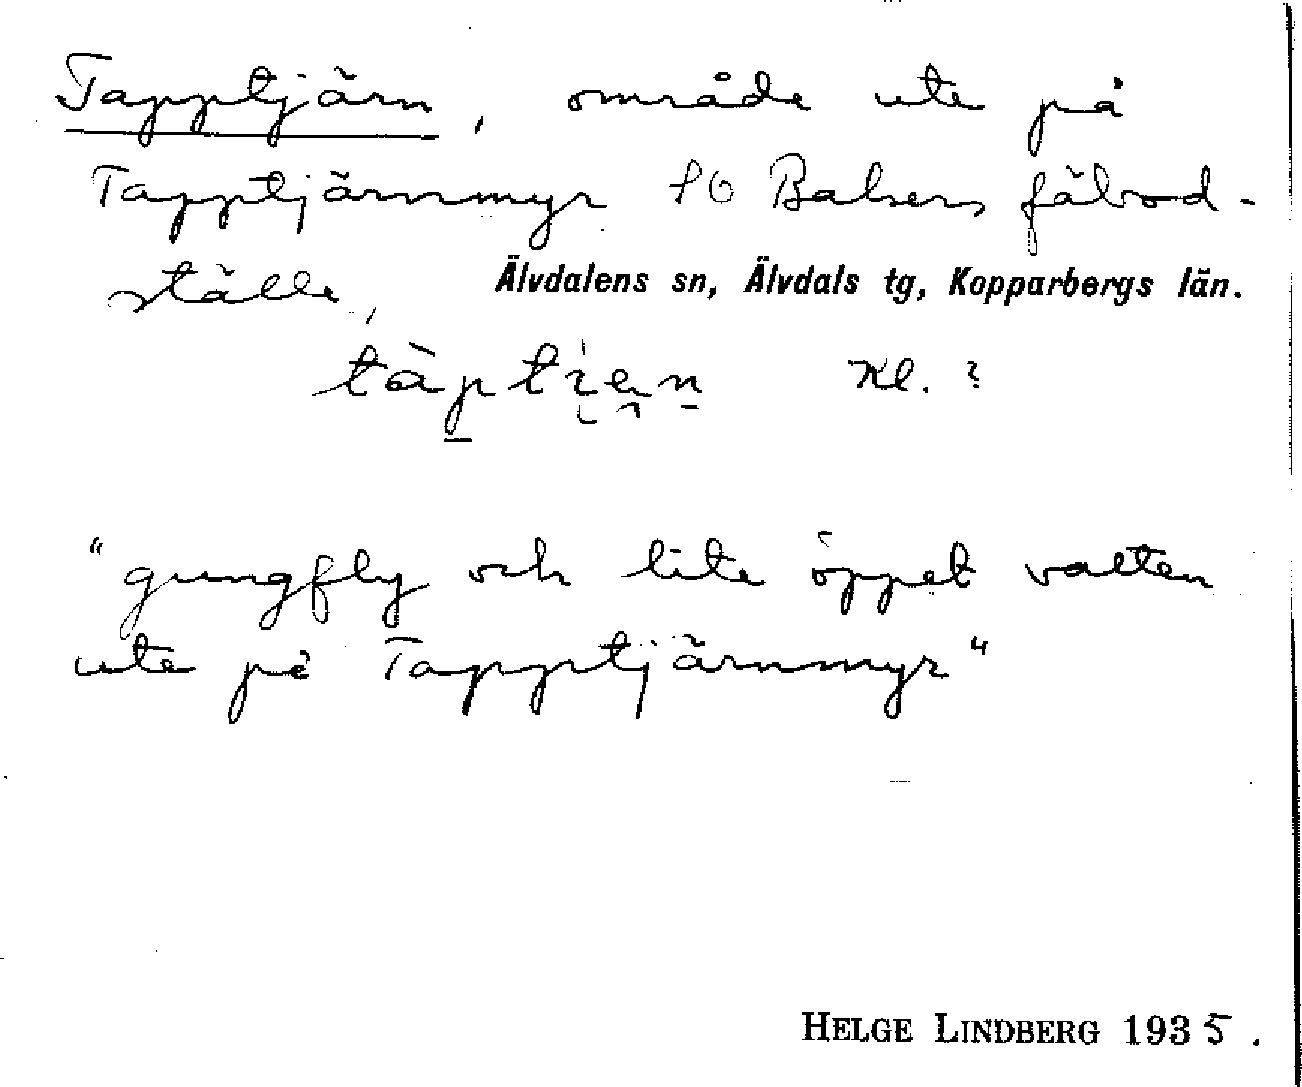 Tapptjärn, område ute på
Tapptjärnmyr SO Balsers fäbod-
ställe, Älvdalens sn, Älvdals tg, Kopparbergs län.
Kl. ?
"gungfly och lite öppet vatten
ute på Tapptjärnmyr"
HELGE LINDBERG 1935.